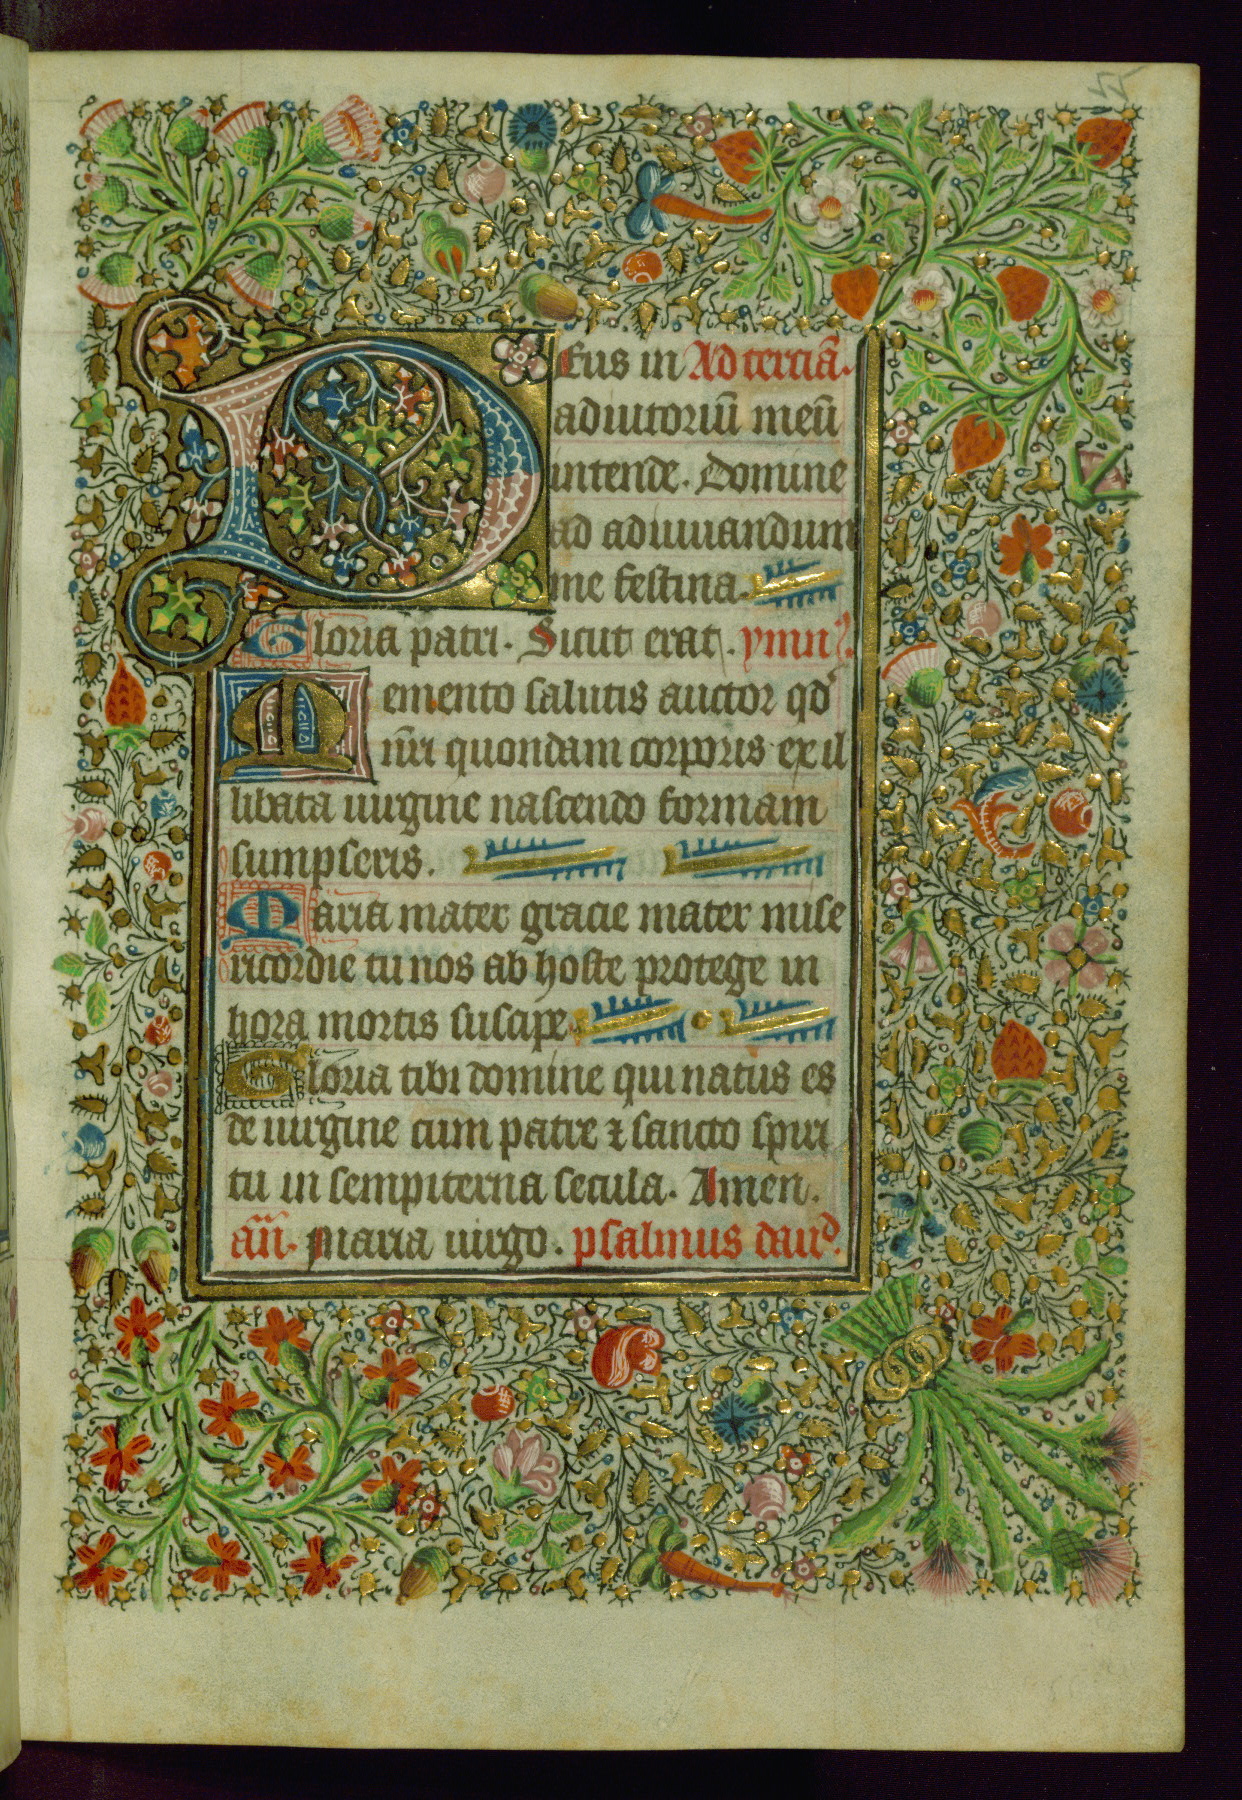 55
DEus in Ad terciā.
adiutoriū meū
intende. Domine
ad adiuuandum
me festina.
Gloria patri. Sicut erat. ymnꝰ.
Memento salutis auctor qđ
nr̄i quondam corporis ex il
libata uirgine nascendo formam
sumpseris.
Maria mater gracie mater mise
ricordie tu nos ab hoste protege in
hora mortis suscipe
Gloria tibi domine qui natus es
de uirgine cum patre ⁊ sancto spiri
tu in sempiterna secula. Amen.
añ. Maria uirgo. psalmus dauid.